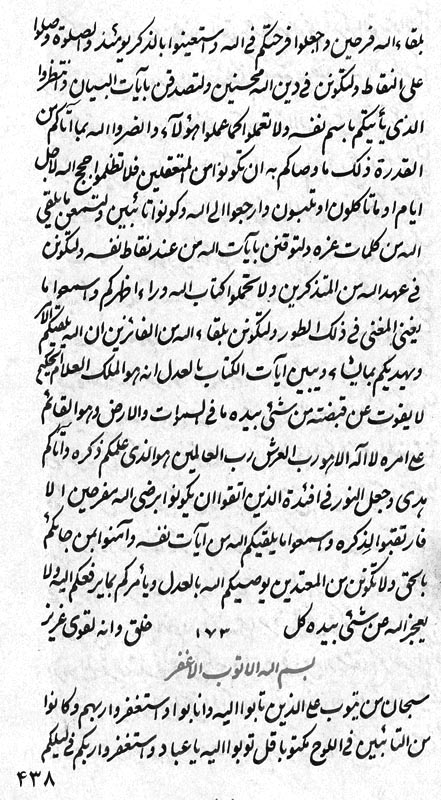 بلقاء الله فرحين واجعلوا فرحتكم في الله واستعينوا بالذكر يومئذ والصلوة وصلوا
على النقاط ولتكونن في دين الله محسنين ولتصدقن بآيات البيان وانتظروا
الذي يأتيكم باسم نفسه ولا تعملوا كما عملوا هؤلاء وانصروا الله بما آتاكم من
القدرة ذلك ما وصاكم به ان كونوا من المتعقلين فلا تظلموا حجج الله لاجل
ايام او ما تأكلون او تلبسون وارجعوا الى الله وكونوا تائبين ولتسمعن ما يلقي
الله من كلمات عزه ولتوقنن بآيات الله من عند نقاط نفسه ولتكونن
في عهد الله من المتذكرين ولا تحملوا كتاب الله وراء اظهركم واسمعوا ما
يغني المغني في ذلك الطور ولتكونن بلقاء الله من الفائزين ان الله يلقيكم
ويهديكم بما يشاء ويبين ايات الكتاب بالعدل انه هو الملك العلام الحكيم
لا يفوت عن قبضته من شئ بيده ما في السموات والارض وهو القائم
على امره لا اله الا هو رب العرش رب العالمين هو الذي علمكم ذكره وآتاكم
هدى وجعل النور في افئدة الذين اتقوا ان يكونوا برضى الله مفرحين الا
فارتقبوا لذكره واسمعوا ما يلقيكم الله من ايات نفسه وآمنوا بمن جاءكم
بالحق ولا تكونن من المعتدين يوصيكم الله بالعدل ويأمركم بما يرفعكم اليه ولا
يعجز الله من شئ بيده كل ١٧٣ خلق وانه لقوي عزيز
بسم الله الاتوب الاغفر
سبحان من يتوب على الذين تابوا اليه وانابوا واستغفروا ربهم وكانوا
من التائبين في اللوح مكتوبا قل توبوا اليه يا عباد واستغفروا ربكم في ليلكم
٤٣٨